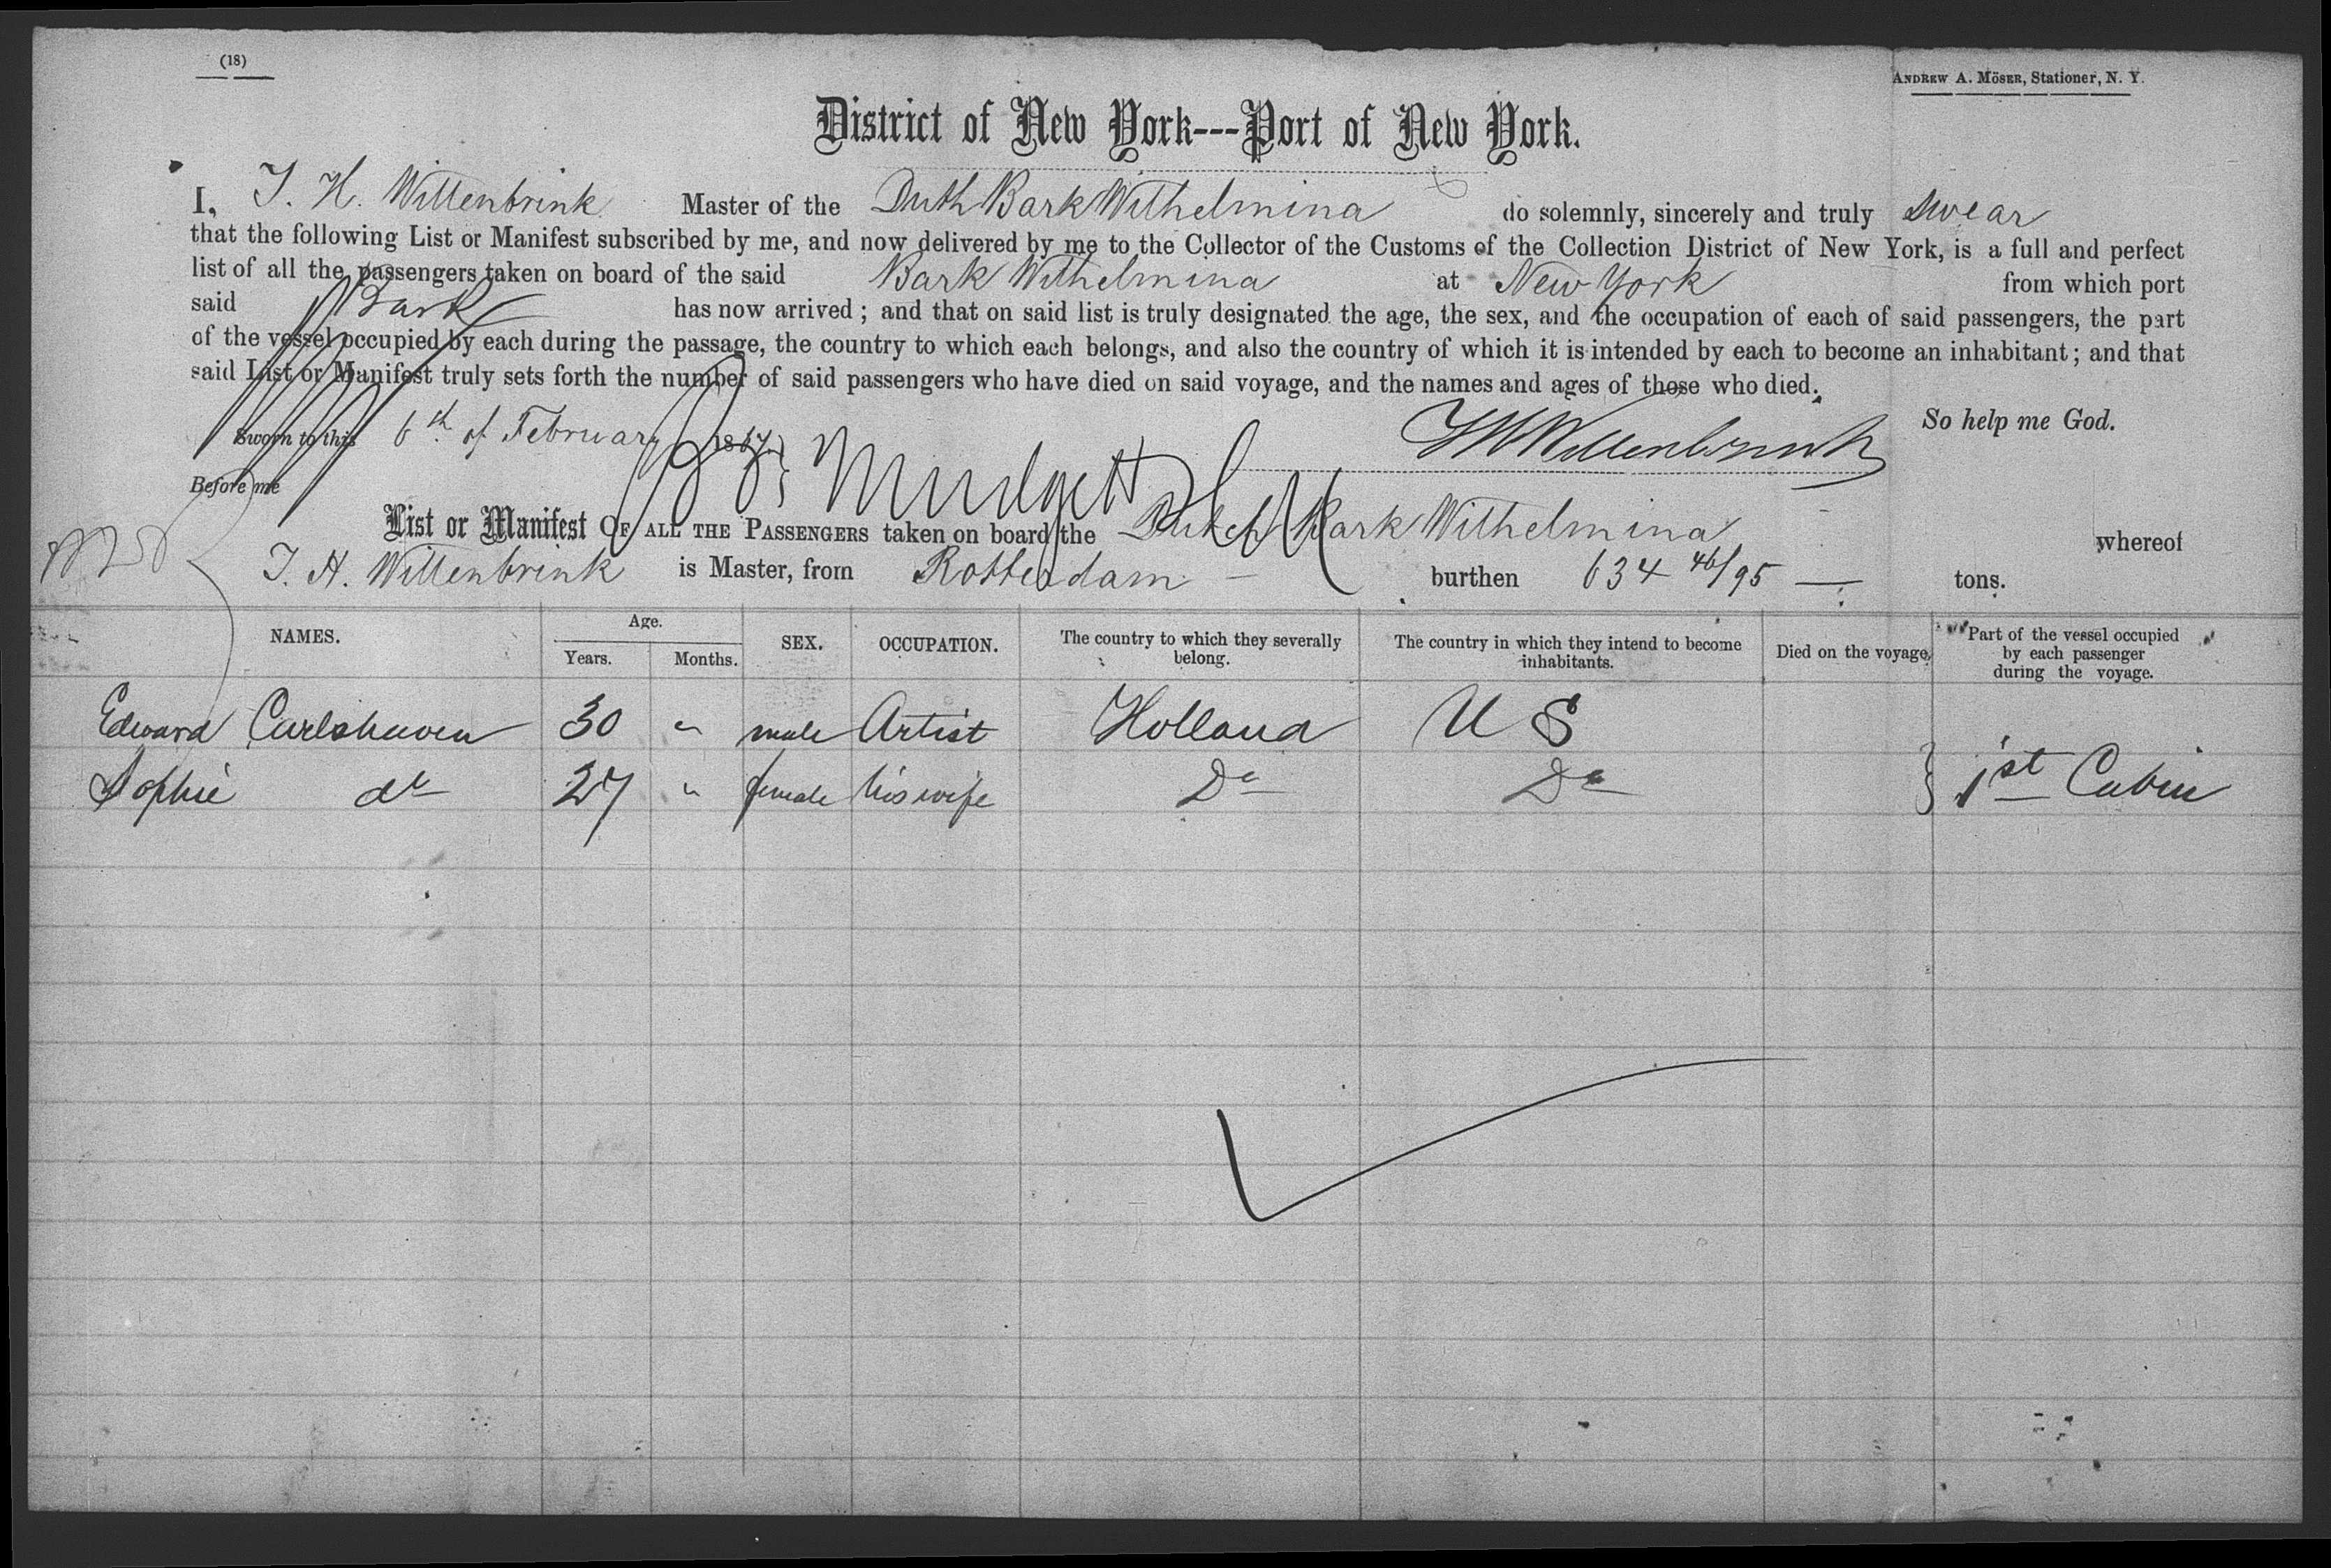 (18)
ANDREW A. MÖSER, Stationer, N. Y.
District of New York---Port of New York.
I, T. H. Wittenbrink Master of the Duth Bark Wilhelmina do solemnly, sincerely and truly swear
that the following List or Manifest subscribed by me, and now delivered by me to the Collector of the Customs of the Collection District of New York, is a full and perfect
list of all the passengers taken on board of the said Bark Wilhelmina at New York from which port
said Bark has now arrived; and that on said list is truly designated the age, the sex, and the occupation of each of said passengers, the part
of the vessel occupied by each during the passage, the country to which each belongs, and also the country of which it is intended by each to become an inhabitant; and that
said List or Manifest truly sets forth the number of said passengers who have died on said voyage, and the names and ages of those who died.
So help me God.
Sworn to this 6th of February 1867 Mudgett
THWittenbrink
Before me
List or Manifest OF ALL THE PASSENGERS taken on board the Dutch Bark Wilhelmina whereof
T. H. Wittenbrink is Master, from Rotterdam burthen 634 46/95 tons.
NAMES. Age. Years. Months. SEX. OCCUPATION. The country to which they severally belong. The country in which they intend to become inhabitants. Died on the voyage. Part of the vessel occupied by each passenger during the voyage.
Edward Carlshaven 30 " male Artist Holland U S
Sophie do 27 " female his wife Do Do } 1st Cabin